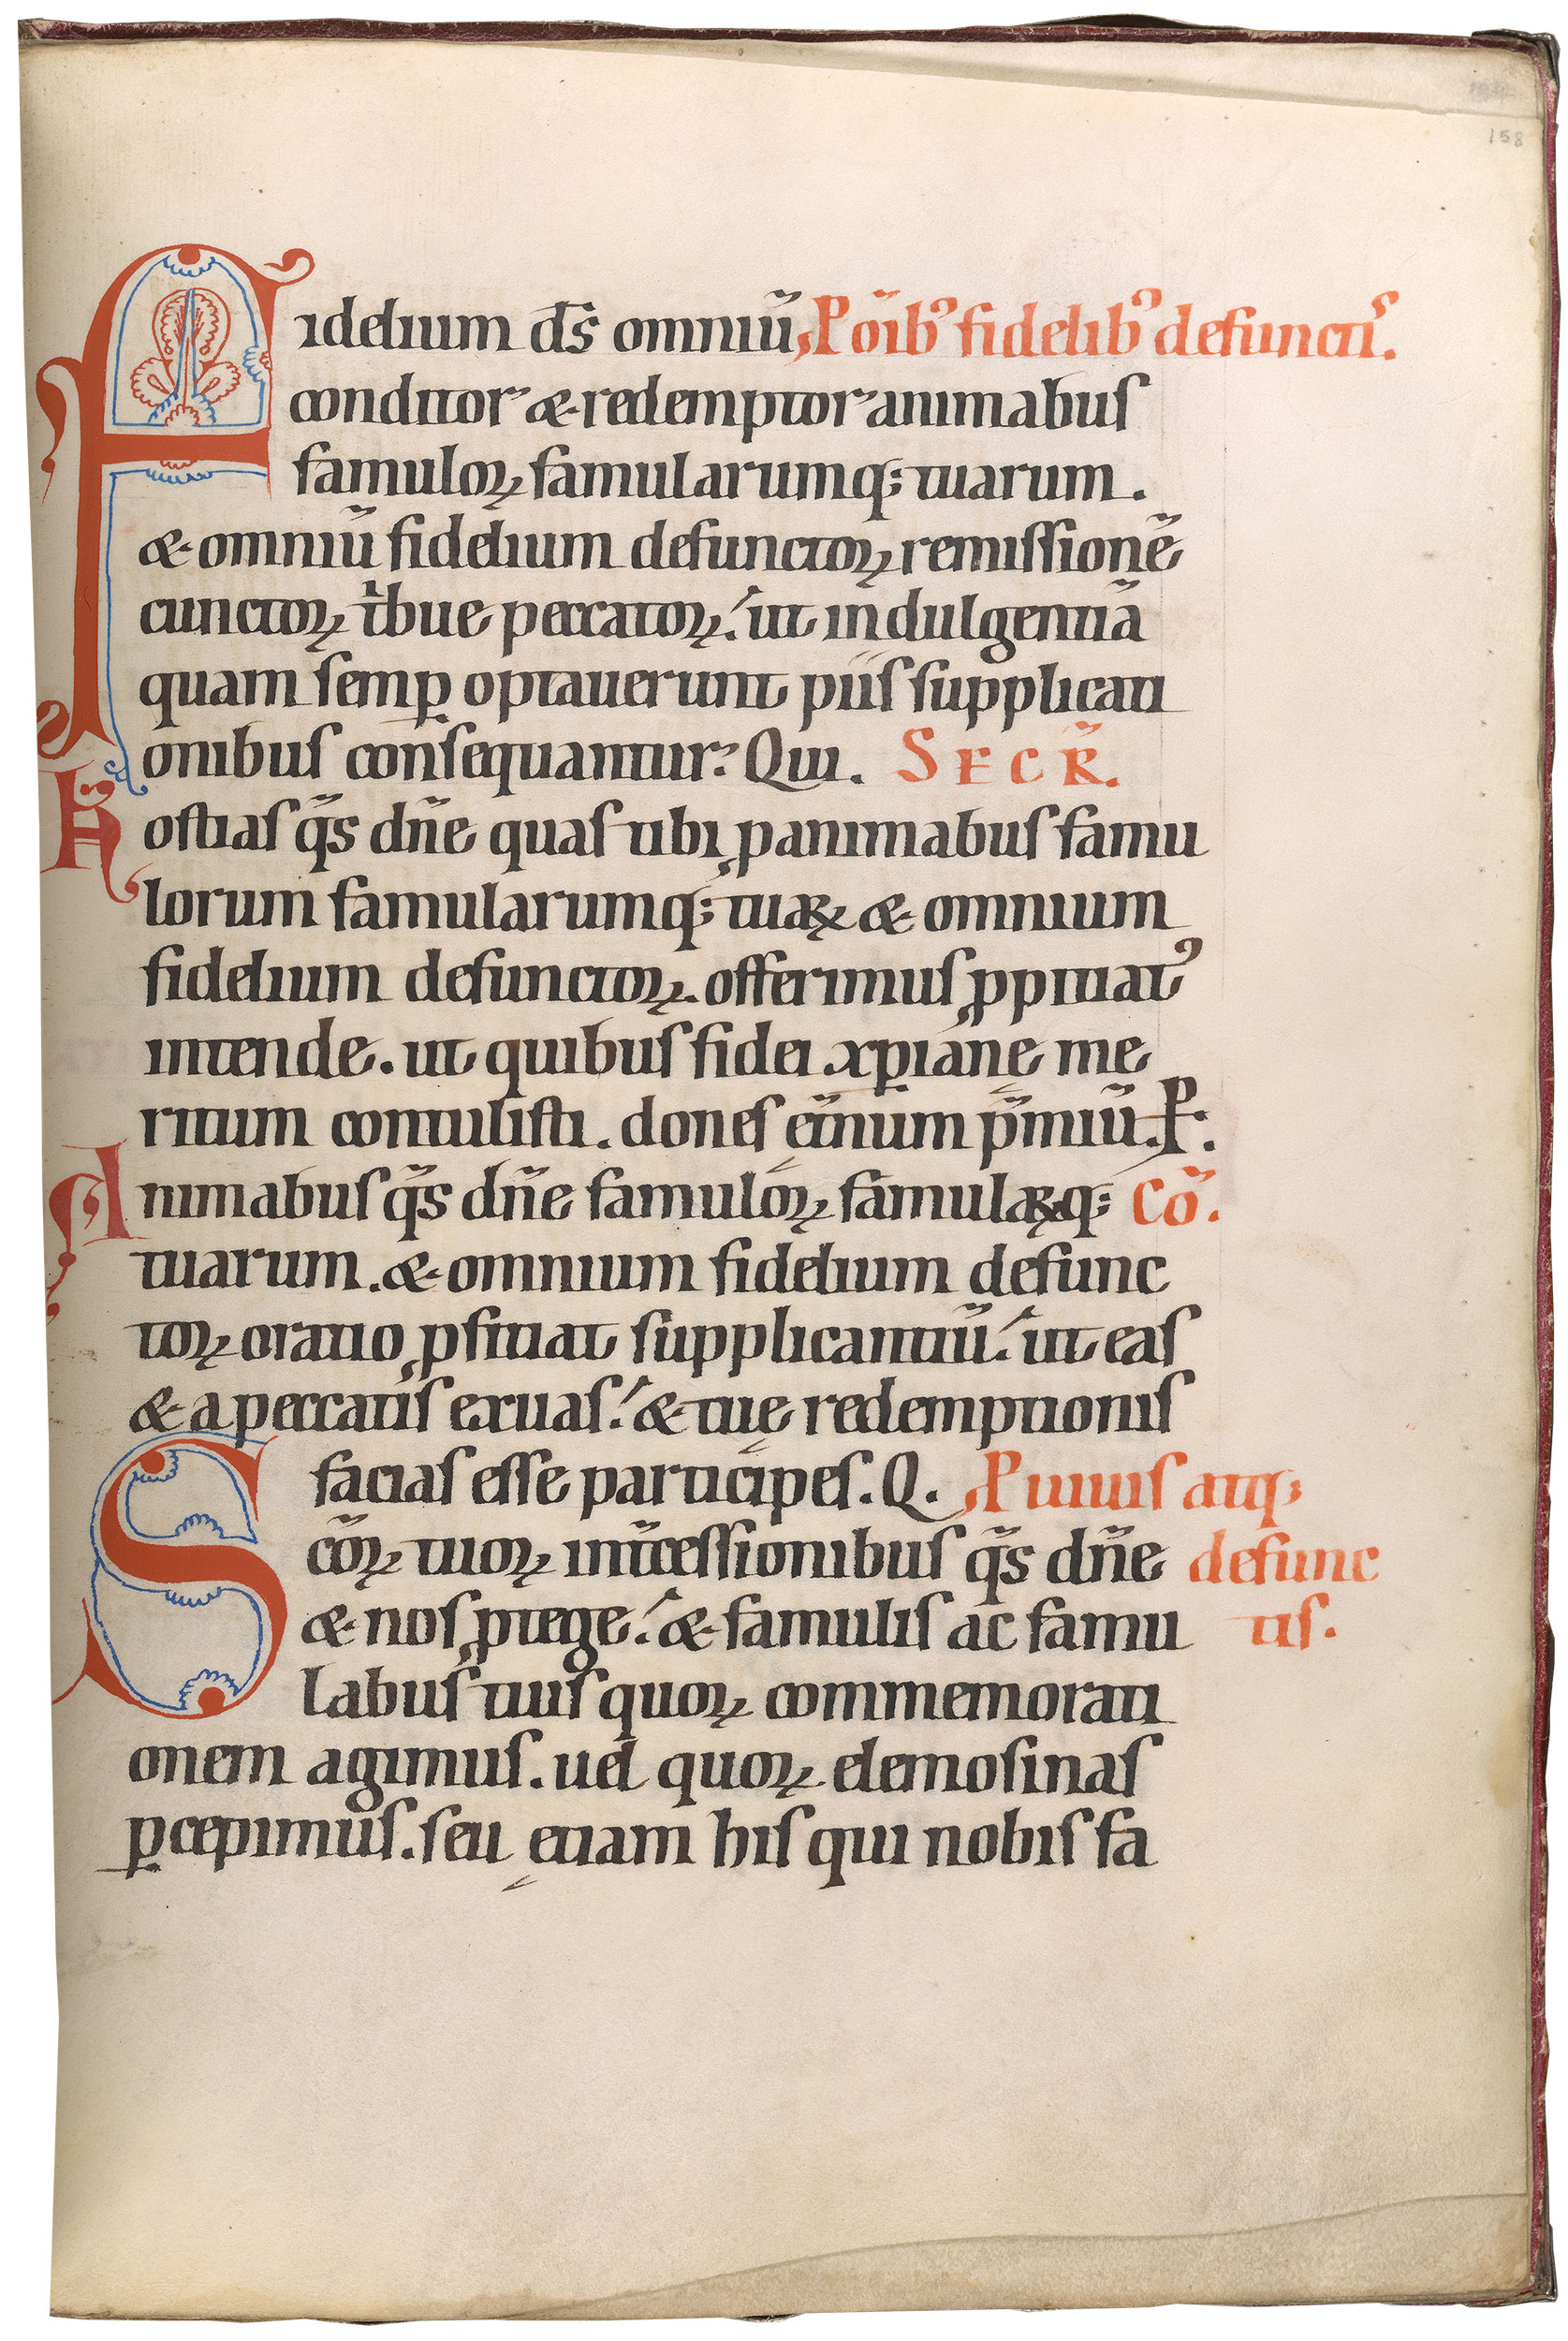 158
Fidelium ds̄ omniū Ꝓ oīb᷒ fidelib᷒ defuncti᷒.
conditor & redemptor animabus
famuloꝝ famularumq; tuarum.
& omniū fidelium defunctoꝝ remissionē
cunctoꝝ tͥbue peccatoꝝ. ut indulgentiā
quam semꝑ optauerunt piis supplicati
onibus consequantur. Qui. SECR̄.
Hostias q̄s dn̄e quas tibi ꝓ animabus famu
lorum famularumq; tuaꝝ & omnium
fidelium defunctoꝝ. offerimus ꝓpitiat᷒
intende. ut quibus fidei xp̄ianę me
ritum contulisti. dones et̄num p̄miū. P.
Animabus q̄s dn̄e famuloꝝ famulaꝝq; Cō.
tuarum. & omnium fidelium defunc
toꝝ oratio ꝓficiat supplicantiū. ut eas
& a peccatis exuas. & tuę redemptionis
facias esse participes. Q. Ꝓ uiuis atq;
Sc̄oꝝ tuoꝝ int̄cessionibus q̄s dn̄e defunc
& nos ꝓtege. & famulis ac famu tis.
labus tuis quoꝝ commemorati
onem agimus. uel quoꝝ elemosinas
ꝑcepimus. seu ętiam his qui nobis fa